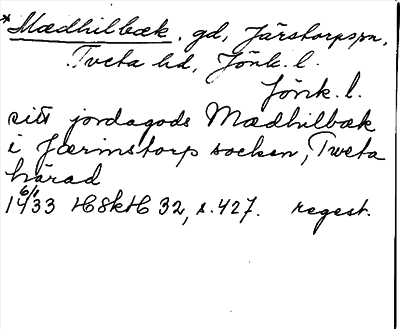 *Mædhilbæk, gd, Järstorps sn,
Tveta hd, Jönk. l.
Jönk. l.
sitt jordagods Mædhilbæk
i Jærimstorp socken, Tweta
härad
6/1 1433 HSkH 32, s. 427. regest.